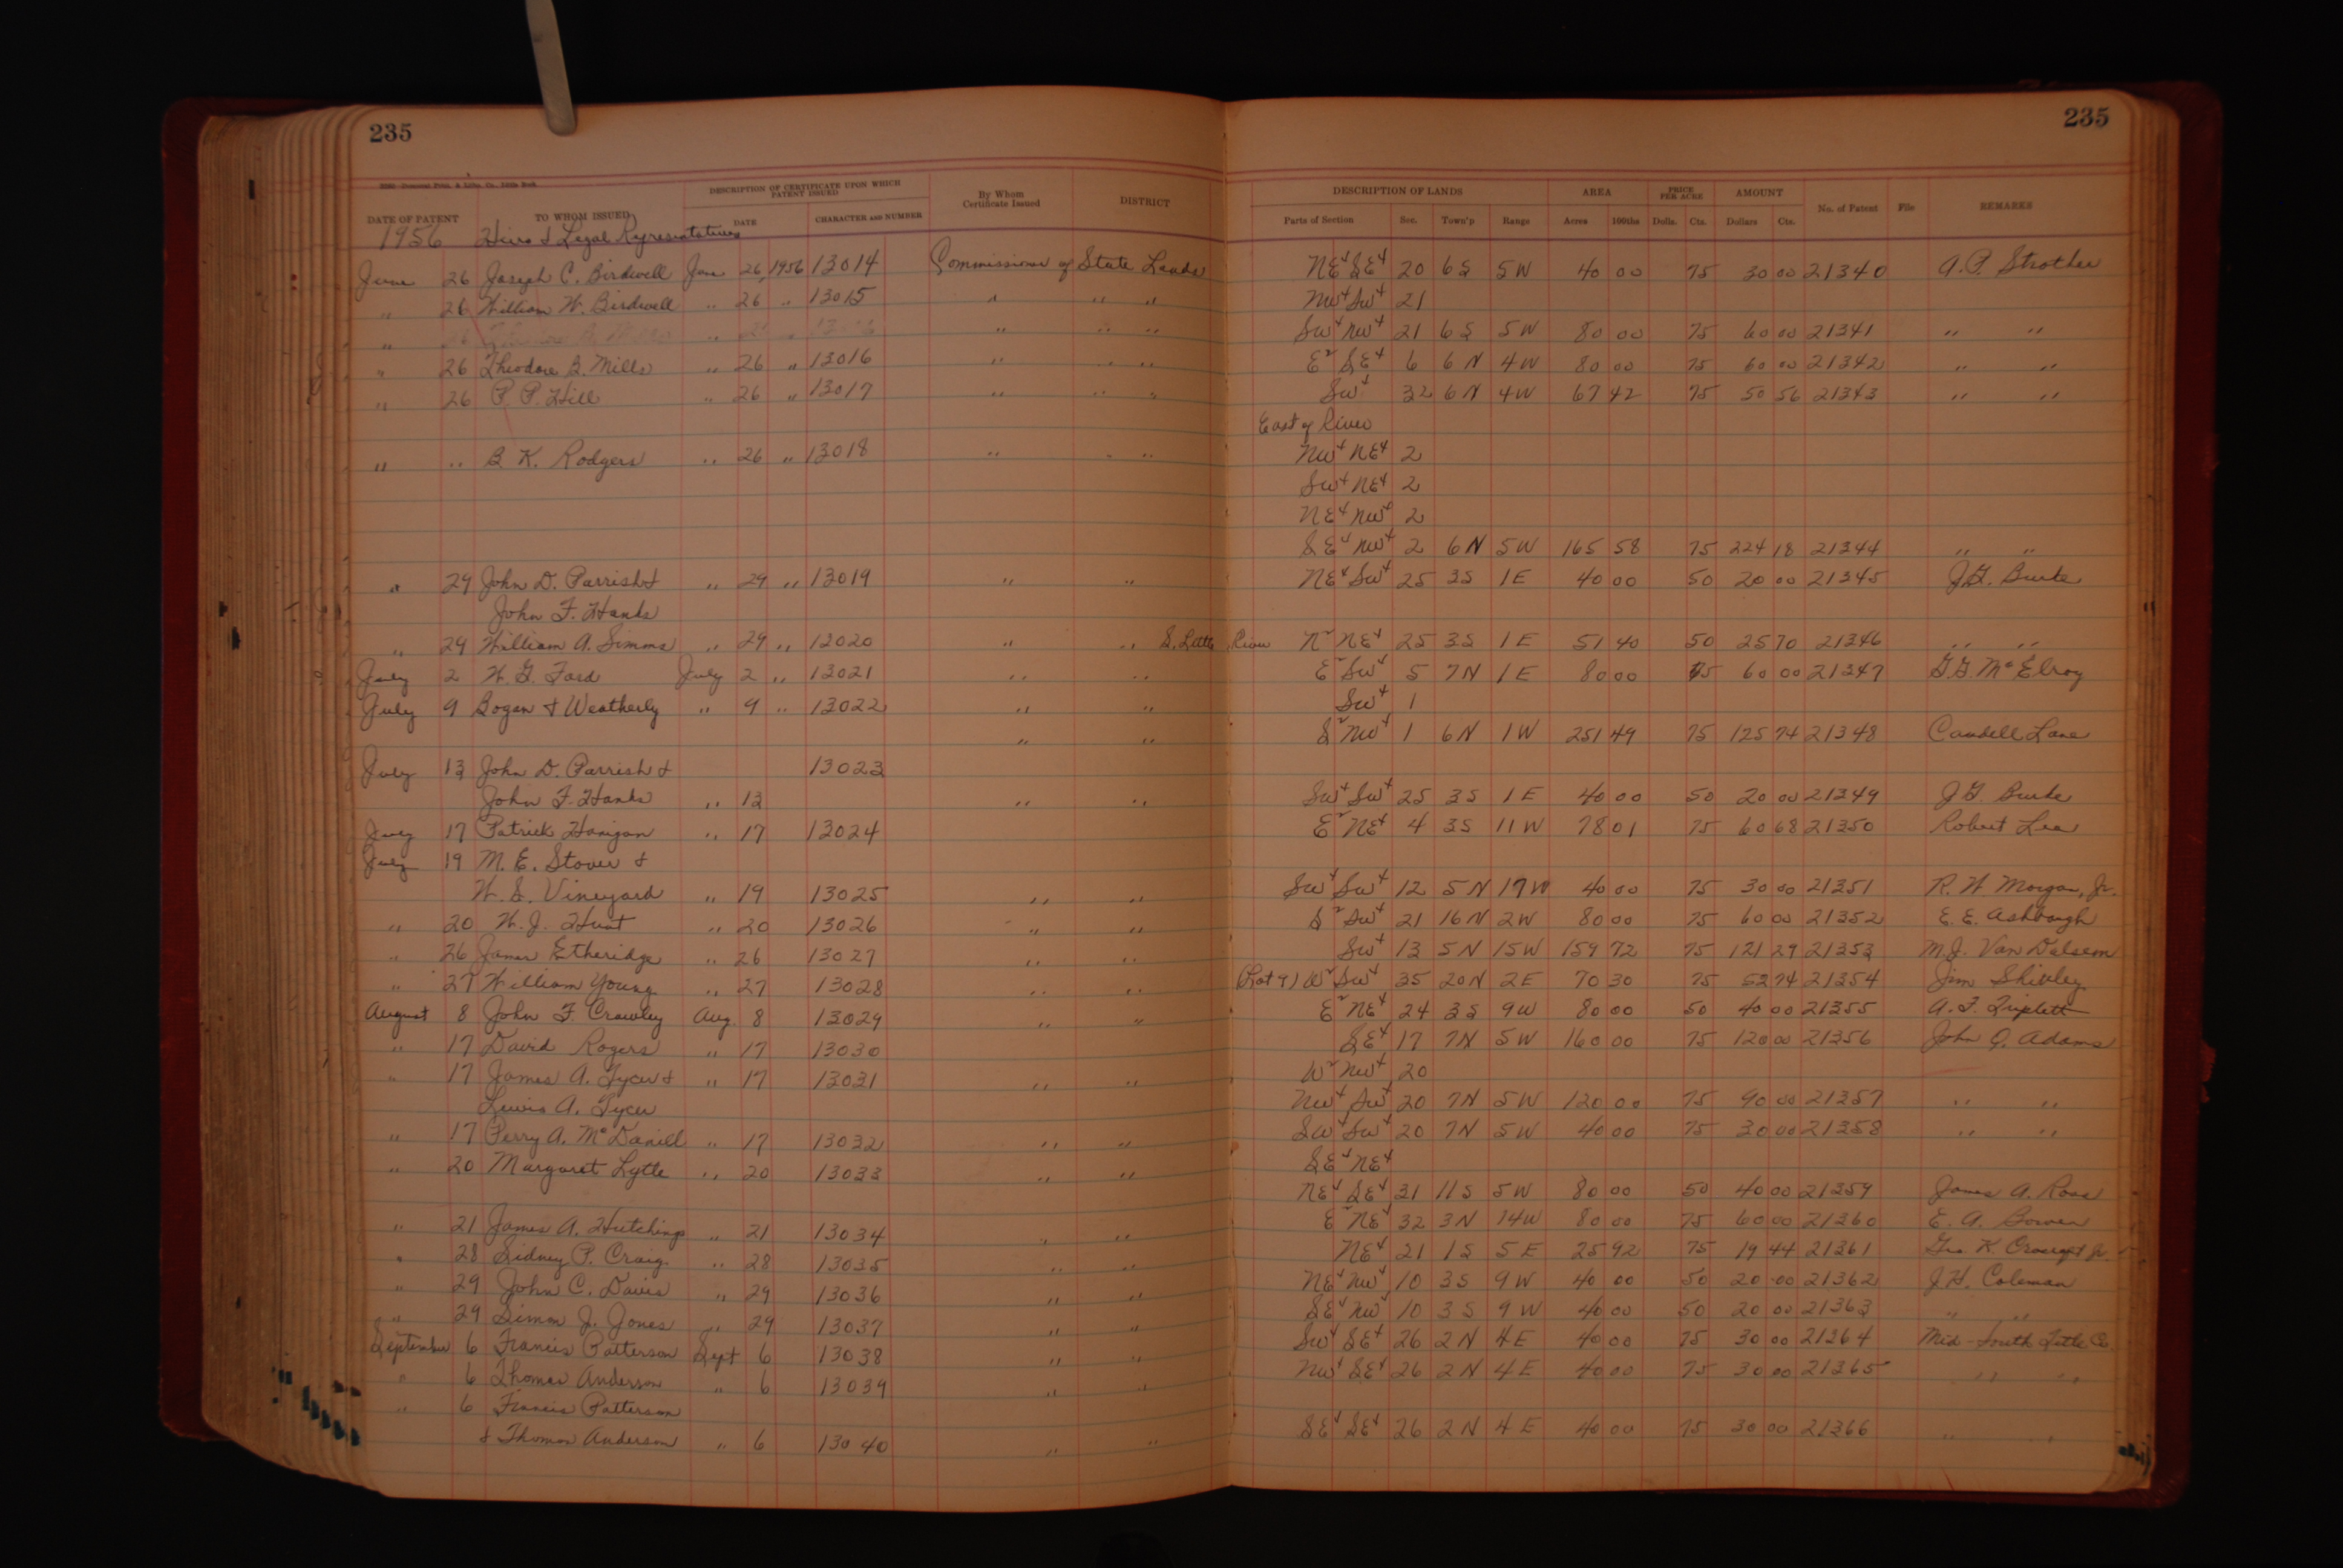 235
235
DESCRIPTION OF CERTIFICATE UPON WHICH PATENT ISSUED
By Whom Certificate Issued
DISTRICT
DESCRIPTION OF LANDS AREA PRICE PER ACRE AMOUNT
No. of Patent File REMARKS
DATE OF PATENT TO WHOM ISSUED DATE CHARACTER AND NUMBER
Parts of Section Sec. Town'p Range Acres 100ths Dolls. Cts. Dollars Cts.
1956 Heirs & Legal Representatives
June 26 Joseph C. Birdwell June 26, 1956 13014 Commissioner of State Lands NE4 SE4 20 6S 5W 40 00 75 30 00 21340 A. P. Strother
" 26 William W. Birdwell " 26 " 13015 " " " NW4 SW4 21
" " " " SW4 NW4 21 6S 5W 80 00 75 60 00 21341 " "
" 26 Theodore B. Mills " 26 " 13016 " " " E2 SE4 6 6N 4W 80 00 75 60 00 21342 " "
" 26 P. P. Hill " 26 " 13017 " " " SW4 32 6N 4W 67 42 75 50 56 21343 " "
East of River
" " B. K. Rodgers " 26 " 13018 " " " NW4 NE4 2
SW4 NE4 2
NE4 NW4 2
SE4 NW4 2 6N 5W 165 58 75 224 18 21344 " "
" 29 John D. Parrish & " 29 " 13019 " " NE4 SW4 25 3S 1E 40 00 50 20 00 21345 J. G. Burke
John F. Hanks
" 29 William A. Simms " 29 " 13020 " " S. Little River N2 NE4 25 3S 1E 51 40 50 25 70 21346 " "
July 2 W. G. Ford July 2 " 13021 " " E2 SW4 5 7N 1E 80 00 75 60 00 21347 G. G. McElroy
July 9 Bogan & Weatherly " 9 " 13022 " " SW4 1
" " S2 NW4 1 6N 1W 251 49 75 125 74 21348 Caudell Lane
July 13 John D. Parrish & 13023
John F. Hanks " 13 " " SW4 SW4 25 3S 1E 40 00 50 20 00 21349 J. G. Burke
July 17 Patrick Hanigan " 17 13024 E2 NE4 4 3S 11W 78 01 75 60 68 21350 Robert Lee
July 19 M. E. Stover &
W. S. Vineyard " 19 13025 " " SW4 SW4 12 5N 17W 40 00 75 30 00 21351 R. W. Morgan, Jr.
" 20 W. J. Hunt " 20 13026 " " S2 SW4 21 16N 2W 80 00 75 60 00 21352 E. E. Ashbaugh
" 26 James Etheridge " 26 13027 " " SW4 13 5N 15W 159 72 75 121 29 21353 M. J. Van Dalsem
" 27 William Young " 27 13028 " " (Lot 9) W2 SW4 35 20N 2E 70 30 75 52 74 21354 Jim Shivley
August 8 John F. Crawley Aug. 8 13029 " " E2 NE4 24 3S 9W 80 00 50 40 00 21355 A. F. Triplett
" 17 David Rogers " 17 13030 SE4 17 7N 5W 160 00 75 120 00 21356 John Q. Adams
" 17 James A. Tycer & " 17 13031 " " W2 NW4 20
Lewis A. Tycer NW4 SW4 20 7N 5W 120 00 75 90 00 21357 " "
" 17 Perry A. McDaniell " 17 13032 " " SW4 SW4 20 7N 5W 40 00 75 30 00 21358 " "
" 20 Margaret Lytle " 20 13033 " " SE4 NE4
NE4 SE4 31 11S 5W 80 00 50 40 00 21359 James A. Ross
" 21 James A. Hutchings " 21 13034 " " E2 NE4 32 3N 14W 80 00 75 60 00 21360 E. A. Bowen
" 28 Sidney P. Craig " 28 13035 " " NE4 21 1S 5E 25 92 75 19 44 21361 Geo K. Jr.
" 29 John C. Davis " 29 13036 " " NE4 NW4 10 3S 9W 40 00 50 20 00 21362 J. H. Coleman
" 29 Simon J. Jones " 29 13037 " " SE4 NW4 10 3S 9W 40 00 50 20 00 21363 " "
September 6 Francis Patterson Sept 6 13038 " " SW4 SE4 26 2N 4E 40 00 75 30 00 21364 Mid-South Title Co
" 6 Thomas Anderson " 6 13039 " " NW4 SE4 26 2N 4E 40 00 75 30 00 21365 " "
" 6 Francis Patterson
& Thomas Anderson " 6 13040 " " SE4 SE4 26 2N 4E 40 00 75 30 00 21366 " "